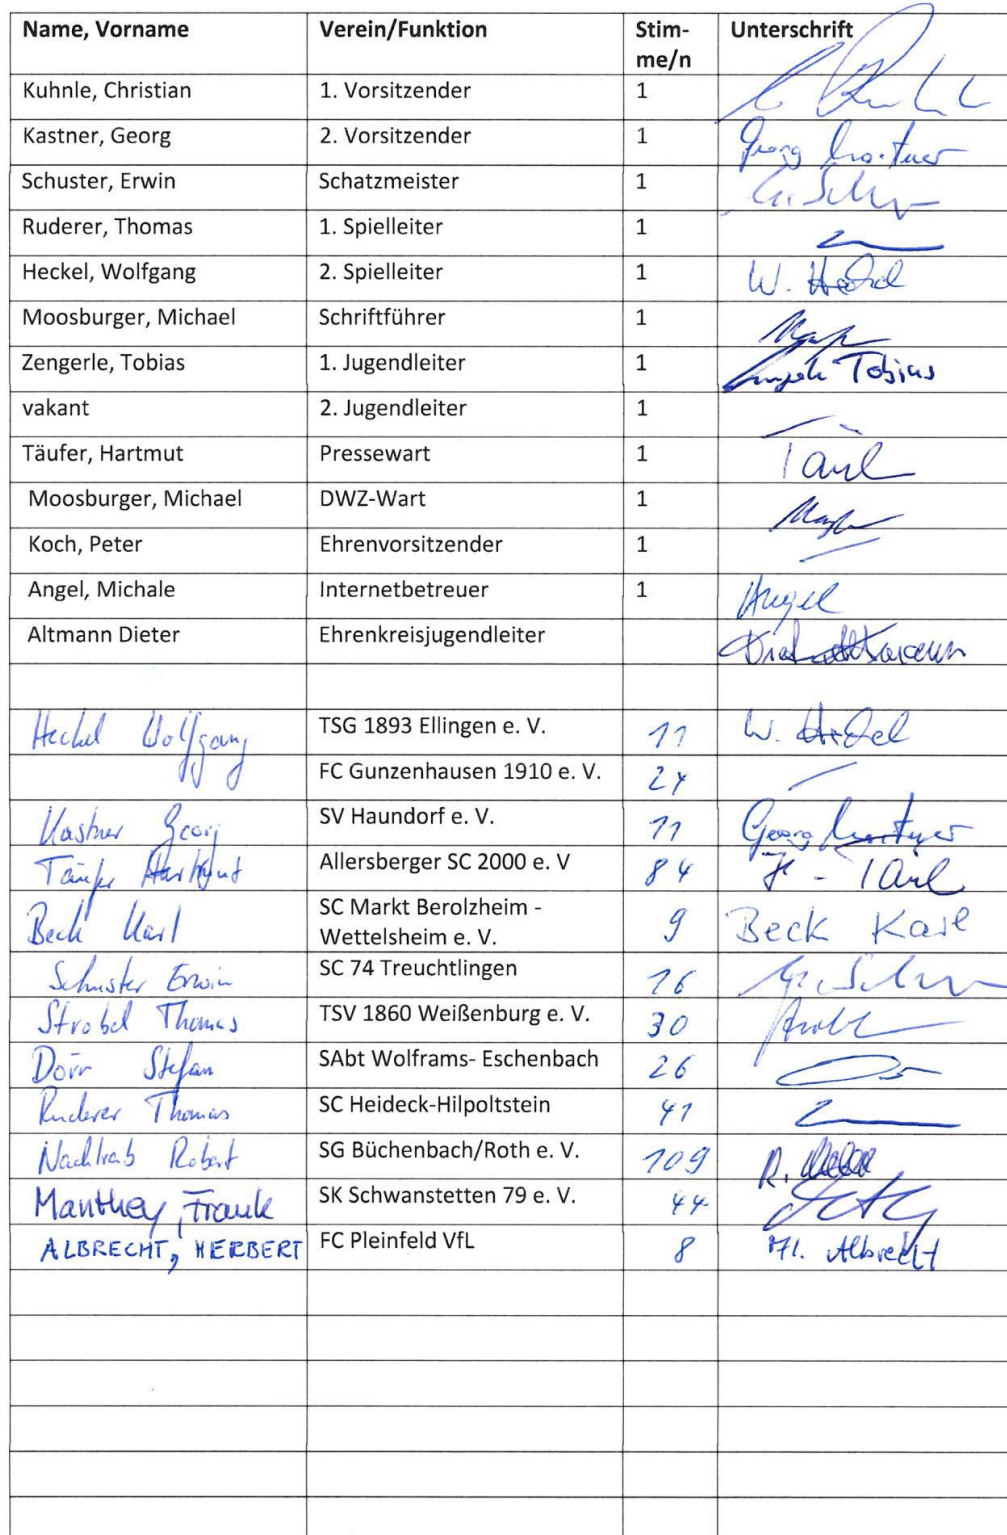 Name, Vorname Verein/Funktion Stim- Unterschrift
me/n
Kuhnle, Christian 1. Vorsitzender 1
Kastner, Georg 2. Vorsitzender 1 Georg Kastner
Schuster, Erwin Schatzmeister 1
Ruderer, Thomas 1. Spielleiter 1
Heckel, Wolfgang 2. Spielleiter 1 W. Heckel
Moosburger, Michael Schriftführer 1
Zengerle, Tobias 1. Jugendleiter 1 Tobias
vakant 2. Jugendleiter 1
Täufer, Hartmut Pressewart 1
Moosburger, Michael DWZ-Wart 1
Koch, Peter Ehrenvorsitzender 1
Angel, Michale Internetbetreuer 1 Angel
Altmann Dieter Ehrenkreisjugendleiter
Heckel Wolfgang TSG 1893 Ellingen e. V. 11 W. Heckel
FC Gunzenhausen 1910 e. V. 24
Kastner Georg SV Haundorf e. V. 11 Georg Kastner
Täufer Hartmut Allersberger SC 2000 e. V 84
Beck Karl SC Markt Berolzheim - 9 Beck Karl
Wettelsheim e. V.
Schuster Erwin SC 74 Treuchtlingen 16
Strobel Thomas TSV 1860 Weißenburg e. V. 30
Dörr Stefan SAbt Wolframs- Eschenbach 26
Ruderer Thomas SC Heideck-Hilpoltstein 41
Nachtrab Robert SG Büchenbach/Roth e. V. 109
Manthey, Frank SK Schwanstetten 79 e. V. 44
ALBRECHT, HERBERT FC Pleinfeld VfL 8 Albrecht